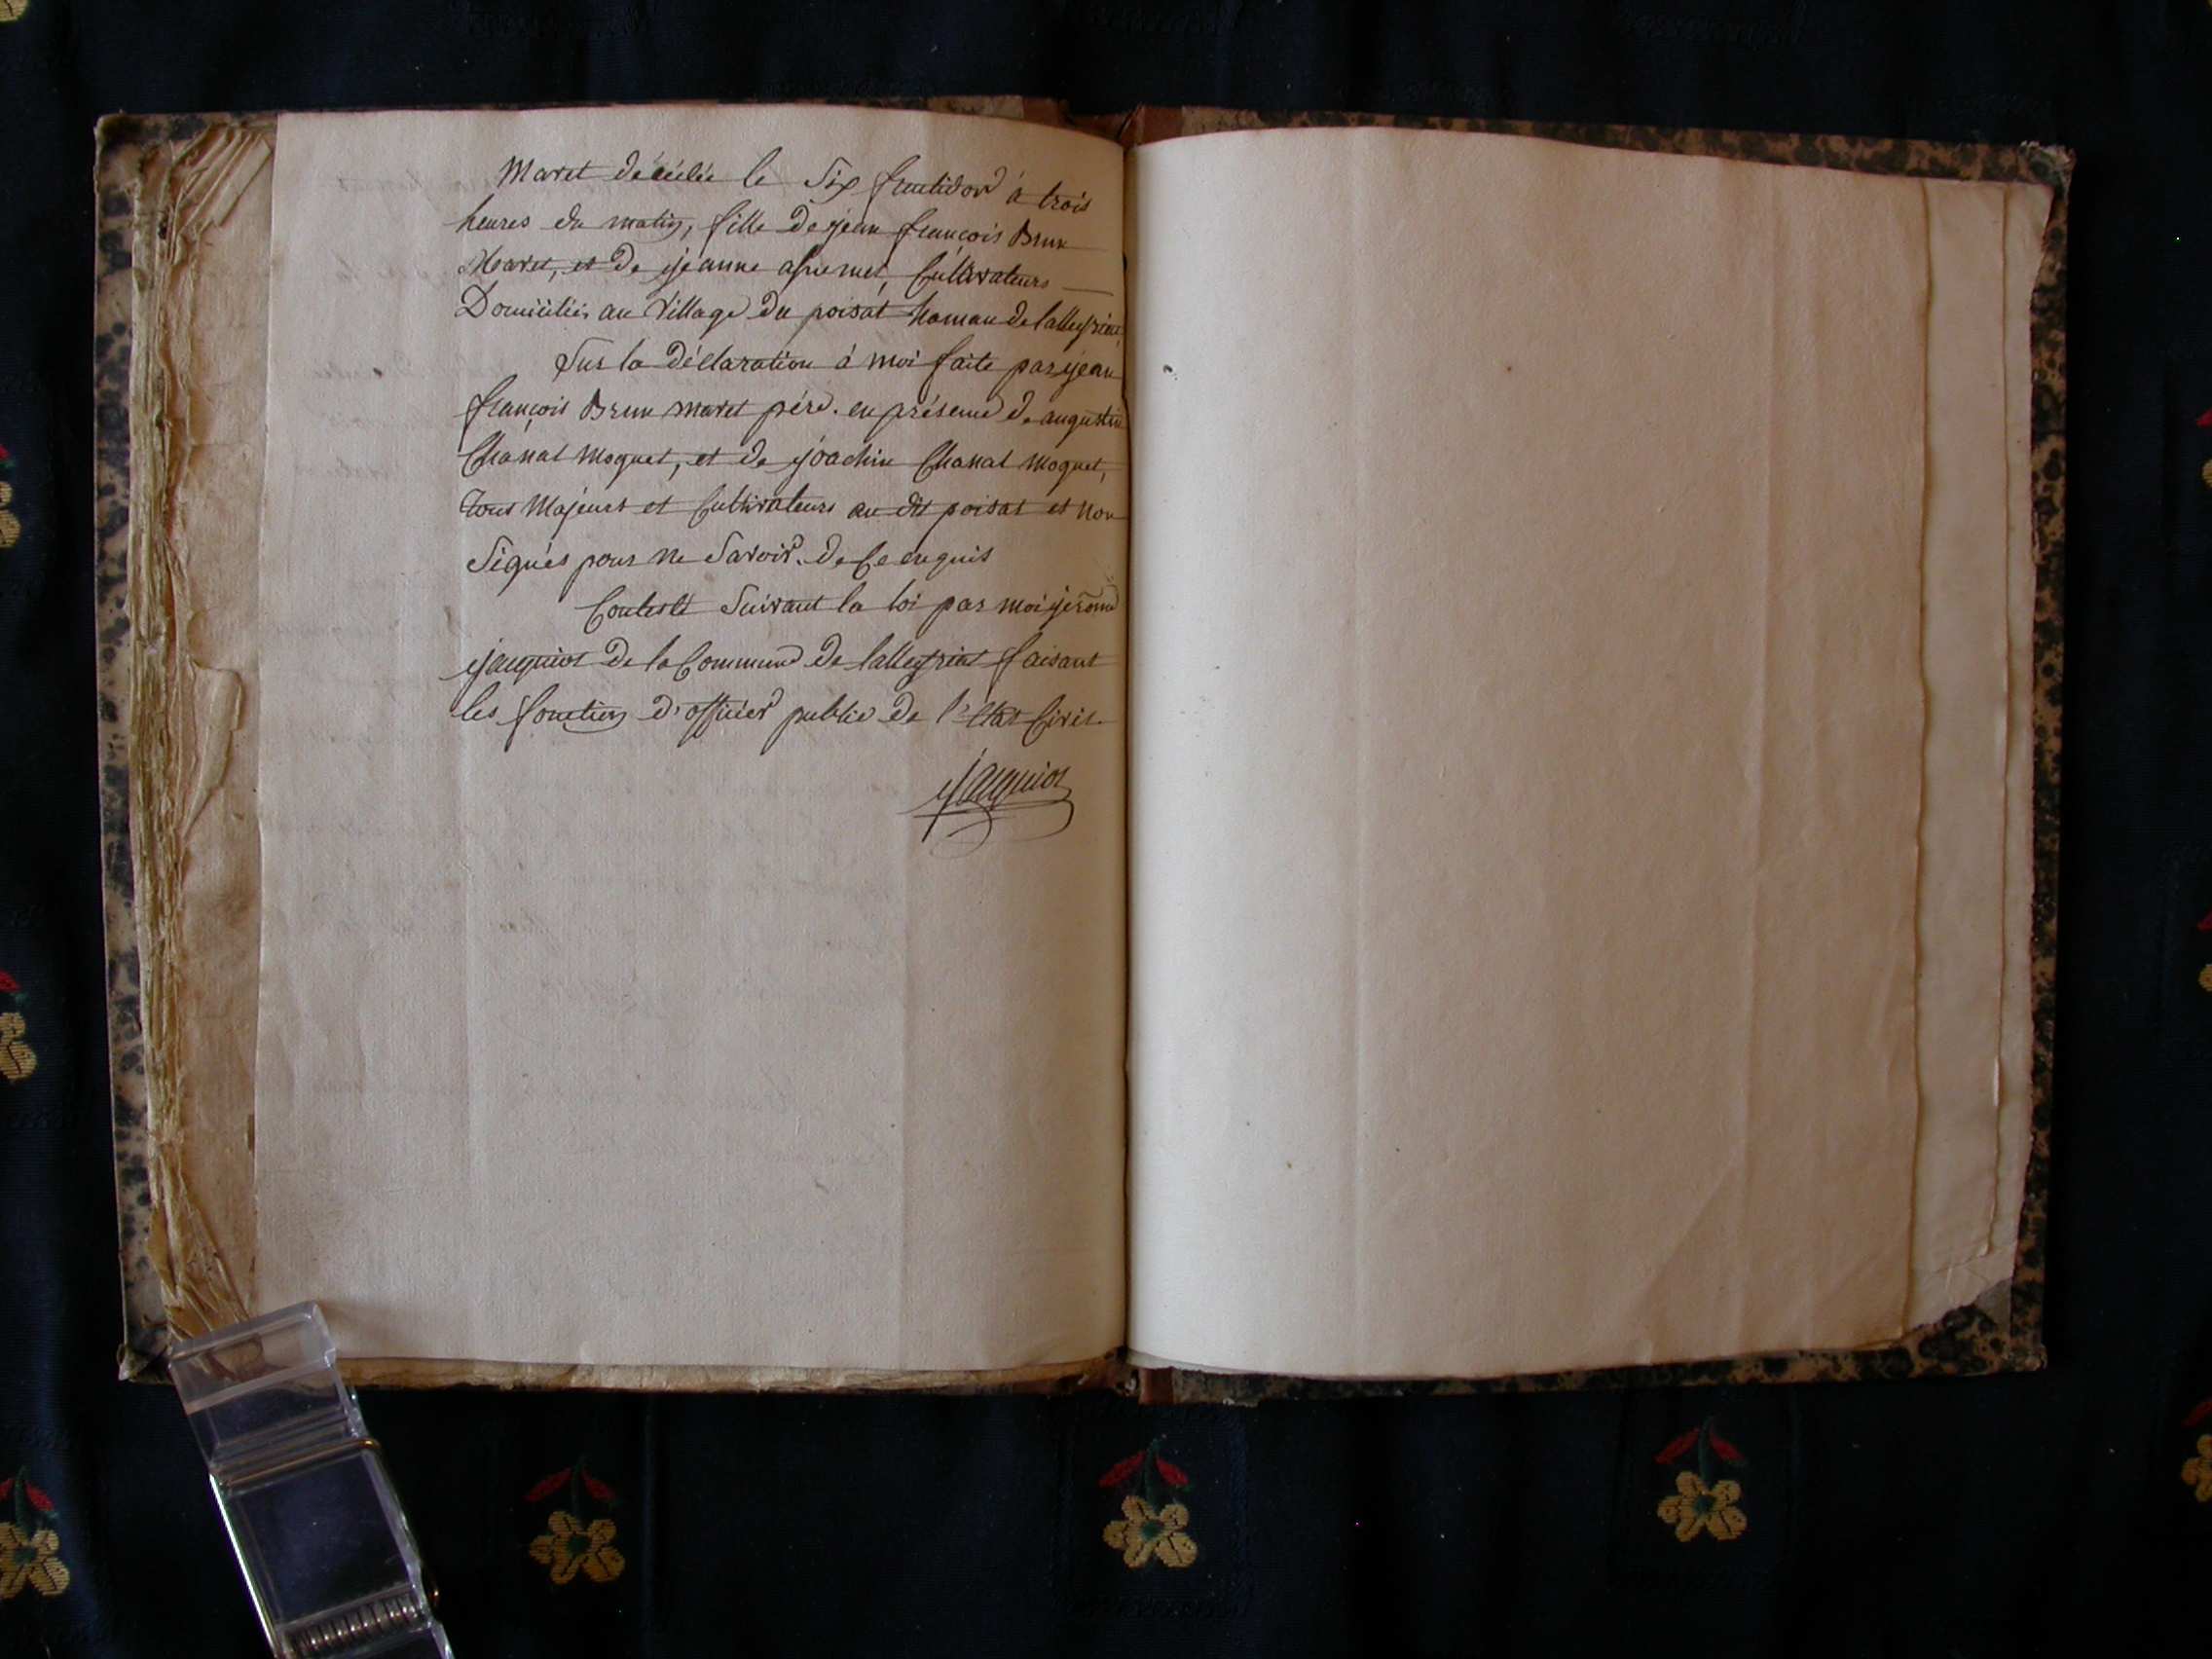 Maret décédée le Six fructidor à trois
heures du matin, fille de jean françois Brun
Maret, et de jeanne, Cultivateurs
Domiciliés au Village du poisat hamau de lalleyriat,
Sur la déclaration à moi faite par jean
françois Brun maret pére. en présence de augustin
Chanal Moquet, et de joachin Chanal Moquet,
tous Majeurs et Cultivateurs au dit poisat et non
Signés pour ne Savoir. de Ce enquis
Constaté Suivant la loi par moi jerome
jacquiot de la Commune de lalleyriat faisant
les fonction d'officier public de l'état Civil.
jacquiot